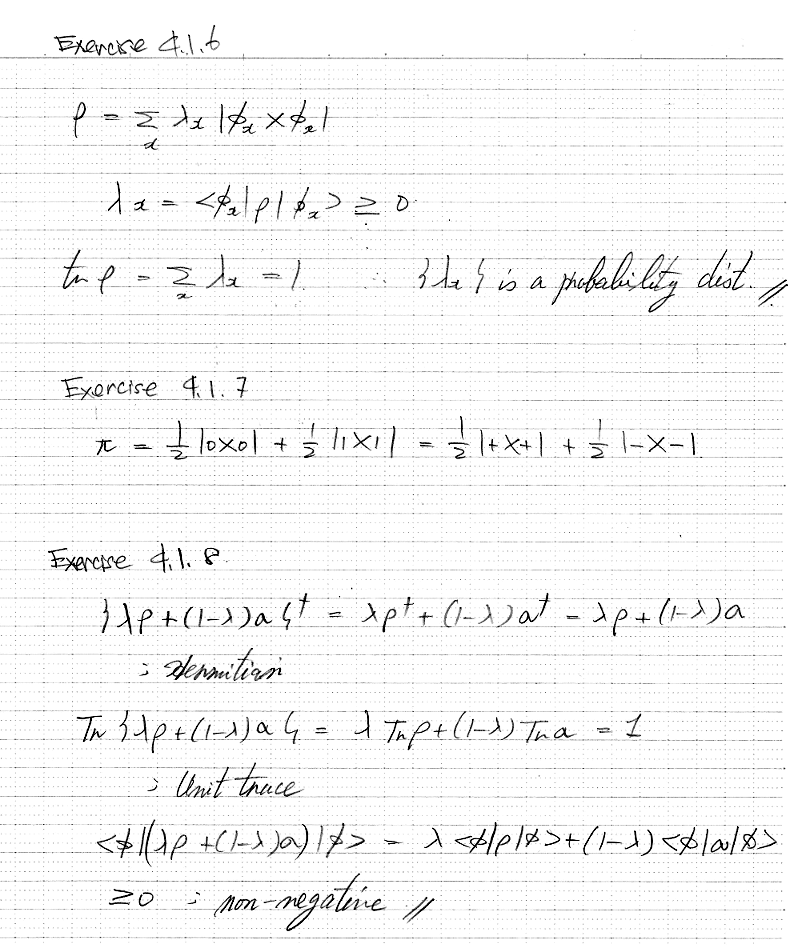 Exercise 4.1.6
ρ = Σ_x λ_x |φ_x><φ_x|
λ_x = <φ_x|ρ|φ_x> ≥ 0
tr ρ = Σ_x λ_x = 1. ∴ {λ_x} is a probability dist. //
Exercise 4.1.7
π = 1/2 |0><0| + 1/2 |1><1| = 1/2 |+><+| + 1/2 |-><-|.
Exercise 4.1.8
{λρ + (1-λ)σ}† = λρ† + (1-λ)σ† = λρ + (1-λ)σ
: Hermitian
Tr {λρ + (1-λ)σ} = λ Tr ρ + (1-λ) Tr σ = 1
: Unit trace
<φ|(λρ + (1-λ)σ)|φ> = λ <φ|ρ|φ> + (1-λ) <φ|σ|φ>
≥ 0 : non-negative //